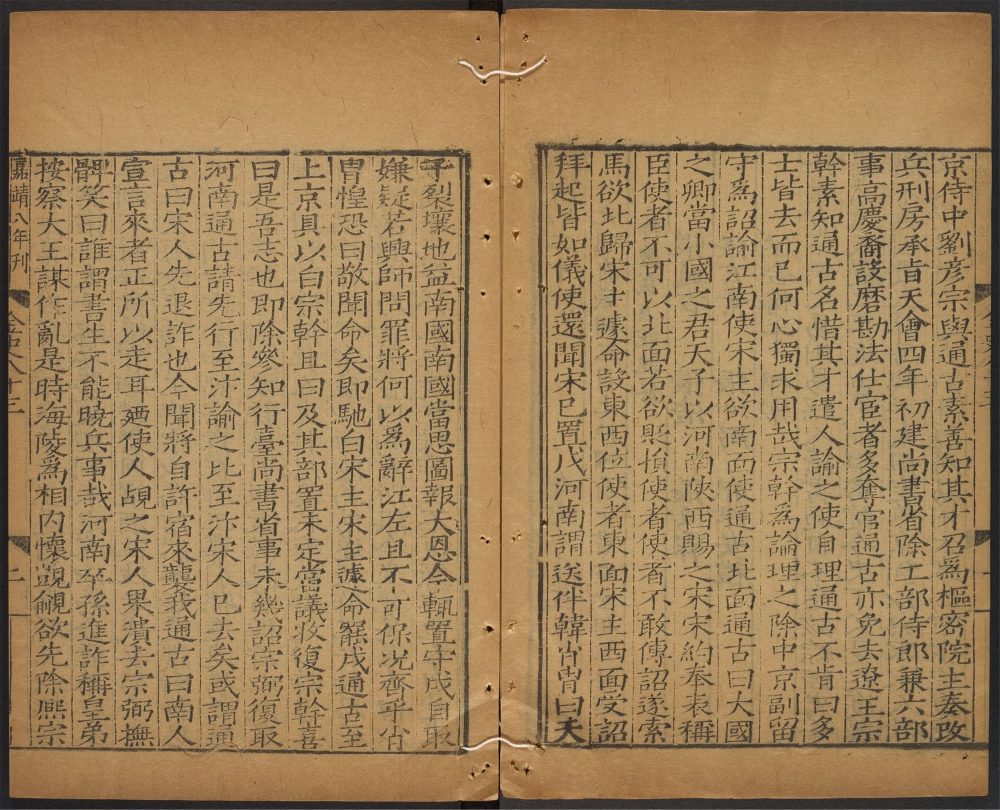 京侍中劉彦宗與通古素善知其才召爲樞密院主奏攺
兵刑房承旨天會四年初建尚書省除工部侍郎兼六部
事高慶裔設磨勘法仕宦者多奪官通古亦免去遼王宗
幹素知通古名惜其才遣人諭之使自理通古不肯曰多
士皆去而已何心獨求用哉宗幹爲論理之除中京副留
守爲詔諭江南使宋主欲南面使通古北面通古曰大國
之卿當小國之君天子以河南陝西賜之宋宋約奉表稱
臣使者不可以北面若欲貶損使者使者不敢傳詔遂索
馬欲北歸宋主遽命設東西位使者東面宋主西面受詔
拜起皆如儀使還聞宋已置戍河南謂送伴韓肖胄曰天
子裂壤地益南國南國當思圖報大恩今輒置守戍自取
嫌疑若興師問罪將何以爲辭江左且不可保况齊乎肖
胄惶恐曰敬聞命矣即馳白宋主宋主遽命罷戍通古至
上京具以白宗幹且曰及其部置未定當議收復宗幹喜
曰是吾志也即除參知行臺尚書省事未幾詔宗弼復取
河南通古請先行至汴諭之比至汴宋人已去矣或謂通
古曰宋人先退詐也今聞將自許宿來襲我通古曰南人
宣言來者正所以走耳廼使人覘之宋人果潰去宗弼撫
髀笑曰誰謂書生不能曉兵事哉河南卒孫進詐稱皇弟
按察大王謀作亂是時海陵爲相内懷覬覦欲先除熙宗
嘉靖八年刊